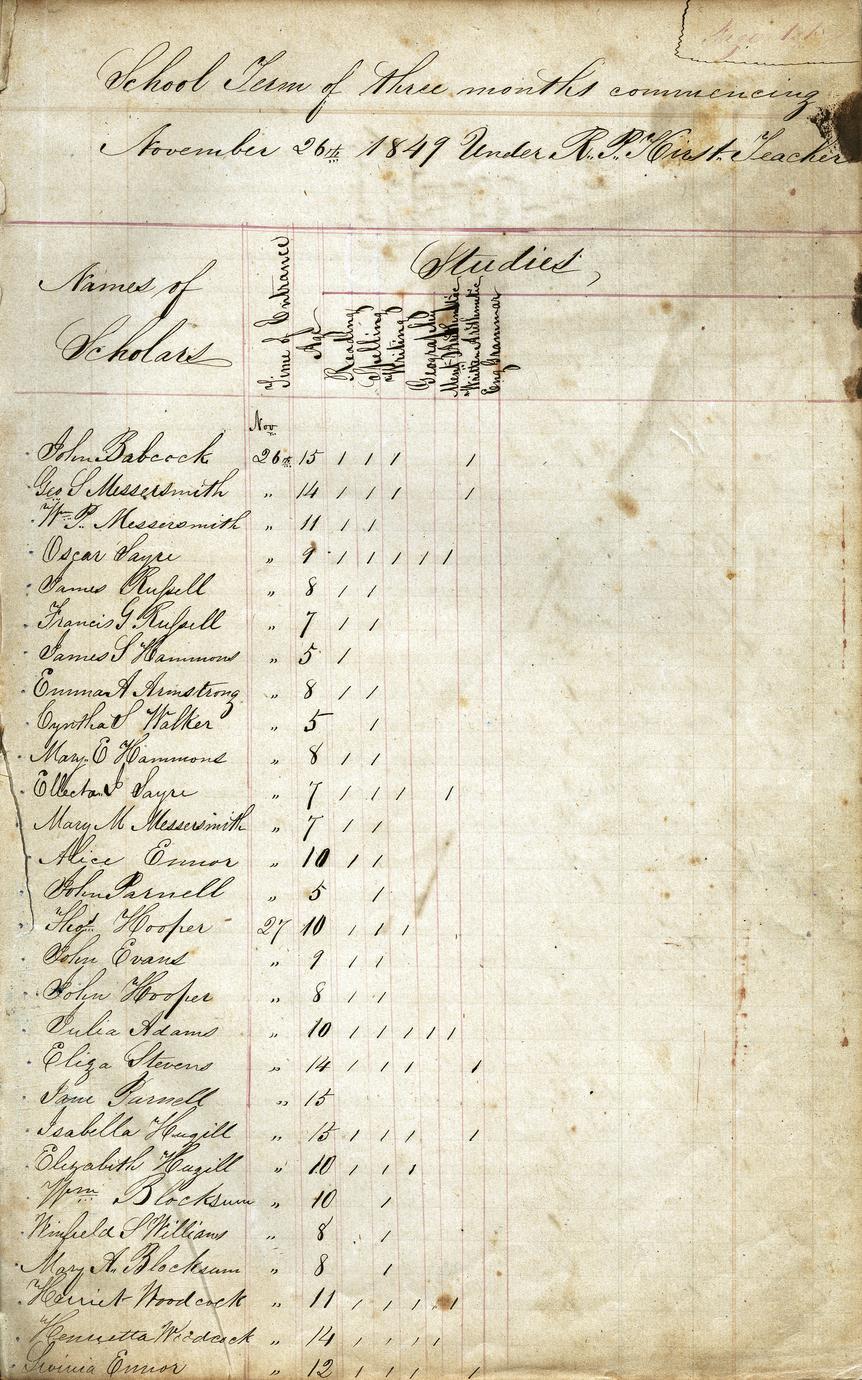 School Term of three months commencing
November 26th 1849 Under R. P. Hirst Teacher
Names of Scholars
Time of Entrance
Age
Studies,
Reading
Spelling
Writing
Geography
Ment. Arithmetic
Written Arithmetic
Eng Grammar
Nov
John Babcock 26th 15 / / / /
Geo S Messersmith " 14 / / / /
Wm P. Messersmith " 11 / /
Oscar Sayre " 9 / / / / /
James Russell " 8 / /
Francis G Russell " 7 / /
James S Hammons " 5 /
Emma A Armstrong " 8 / /
Cyntha S Walker " 5 /
Mary E Hammons " 8 / /
Ellecta J Sayre " 7 / / / /
Mary M Messersmith " 7 / /
Alice Ennor " 10 / /
John Parnell " 5 /
Thos Hooper 27 10 / / /
John Evans " 9 / /
John Hooper " 8 / /
Julia Adams " 10 / / / / /
Eliza Stevens " 14 / / / /
Jane Parnell " 15
Isabella Hugill " 15 / / / /
Elizabith Hugill " 10 / / /
Wm Blocksum " 10 /
Winfield S Williams " 8 /
Mary A. Blocksum " 8 /
Harriet Woodcock " 11 / / / / /
Henrietta Woodcock " 14 / / / /
Livinia Ennor " 12 / / / /